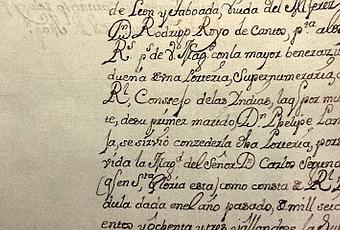 de Leon y taboada, viuda del Alferez
Dn Rodrigo Royo de Cantos, pta a los
Rs ps de V. Magd con la mayor beneraz
dueña de una Porteria, Supernumeraria,
Rl Consejo de las Yndias, la q por mu
te, de su primer marido, Dn Phelipe Lan
sa, se sirvio conzederla dha Porteria, por
vida la Magd del Señor Dn Carlos Segund
(q en sta Gloria esta) como consta de Rl
dula dada en el año pasado, de mill seic
entos y ochenta y tres y allandose la